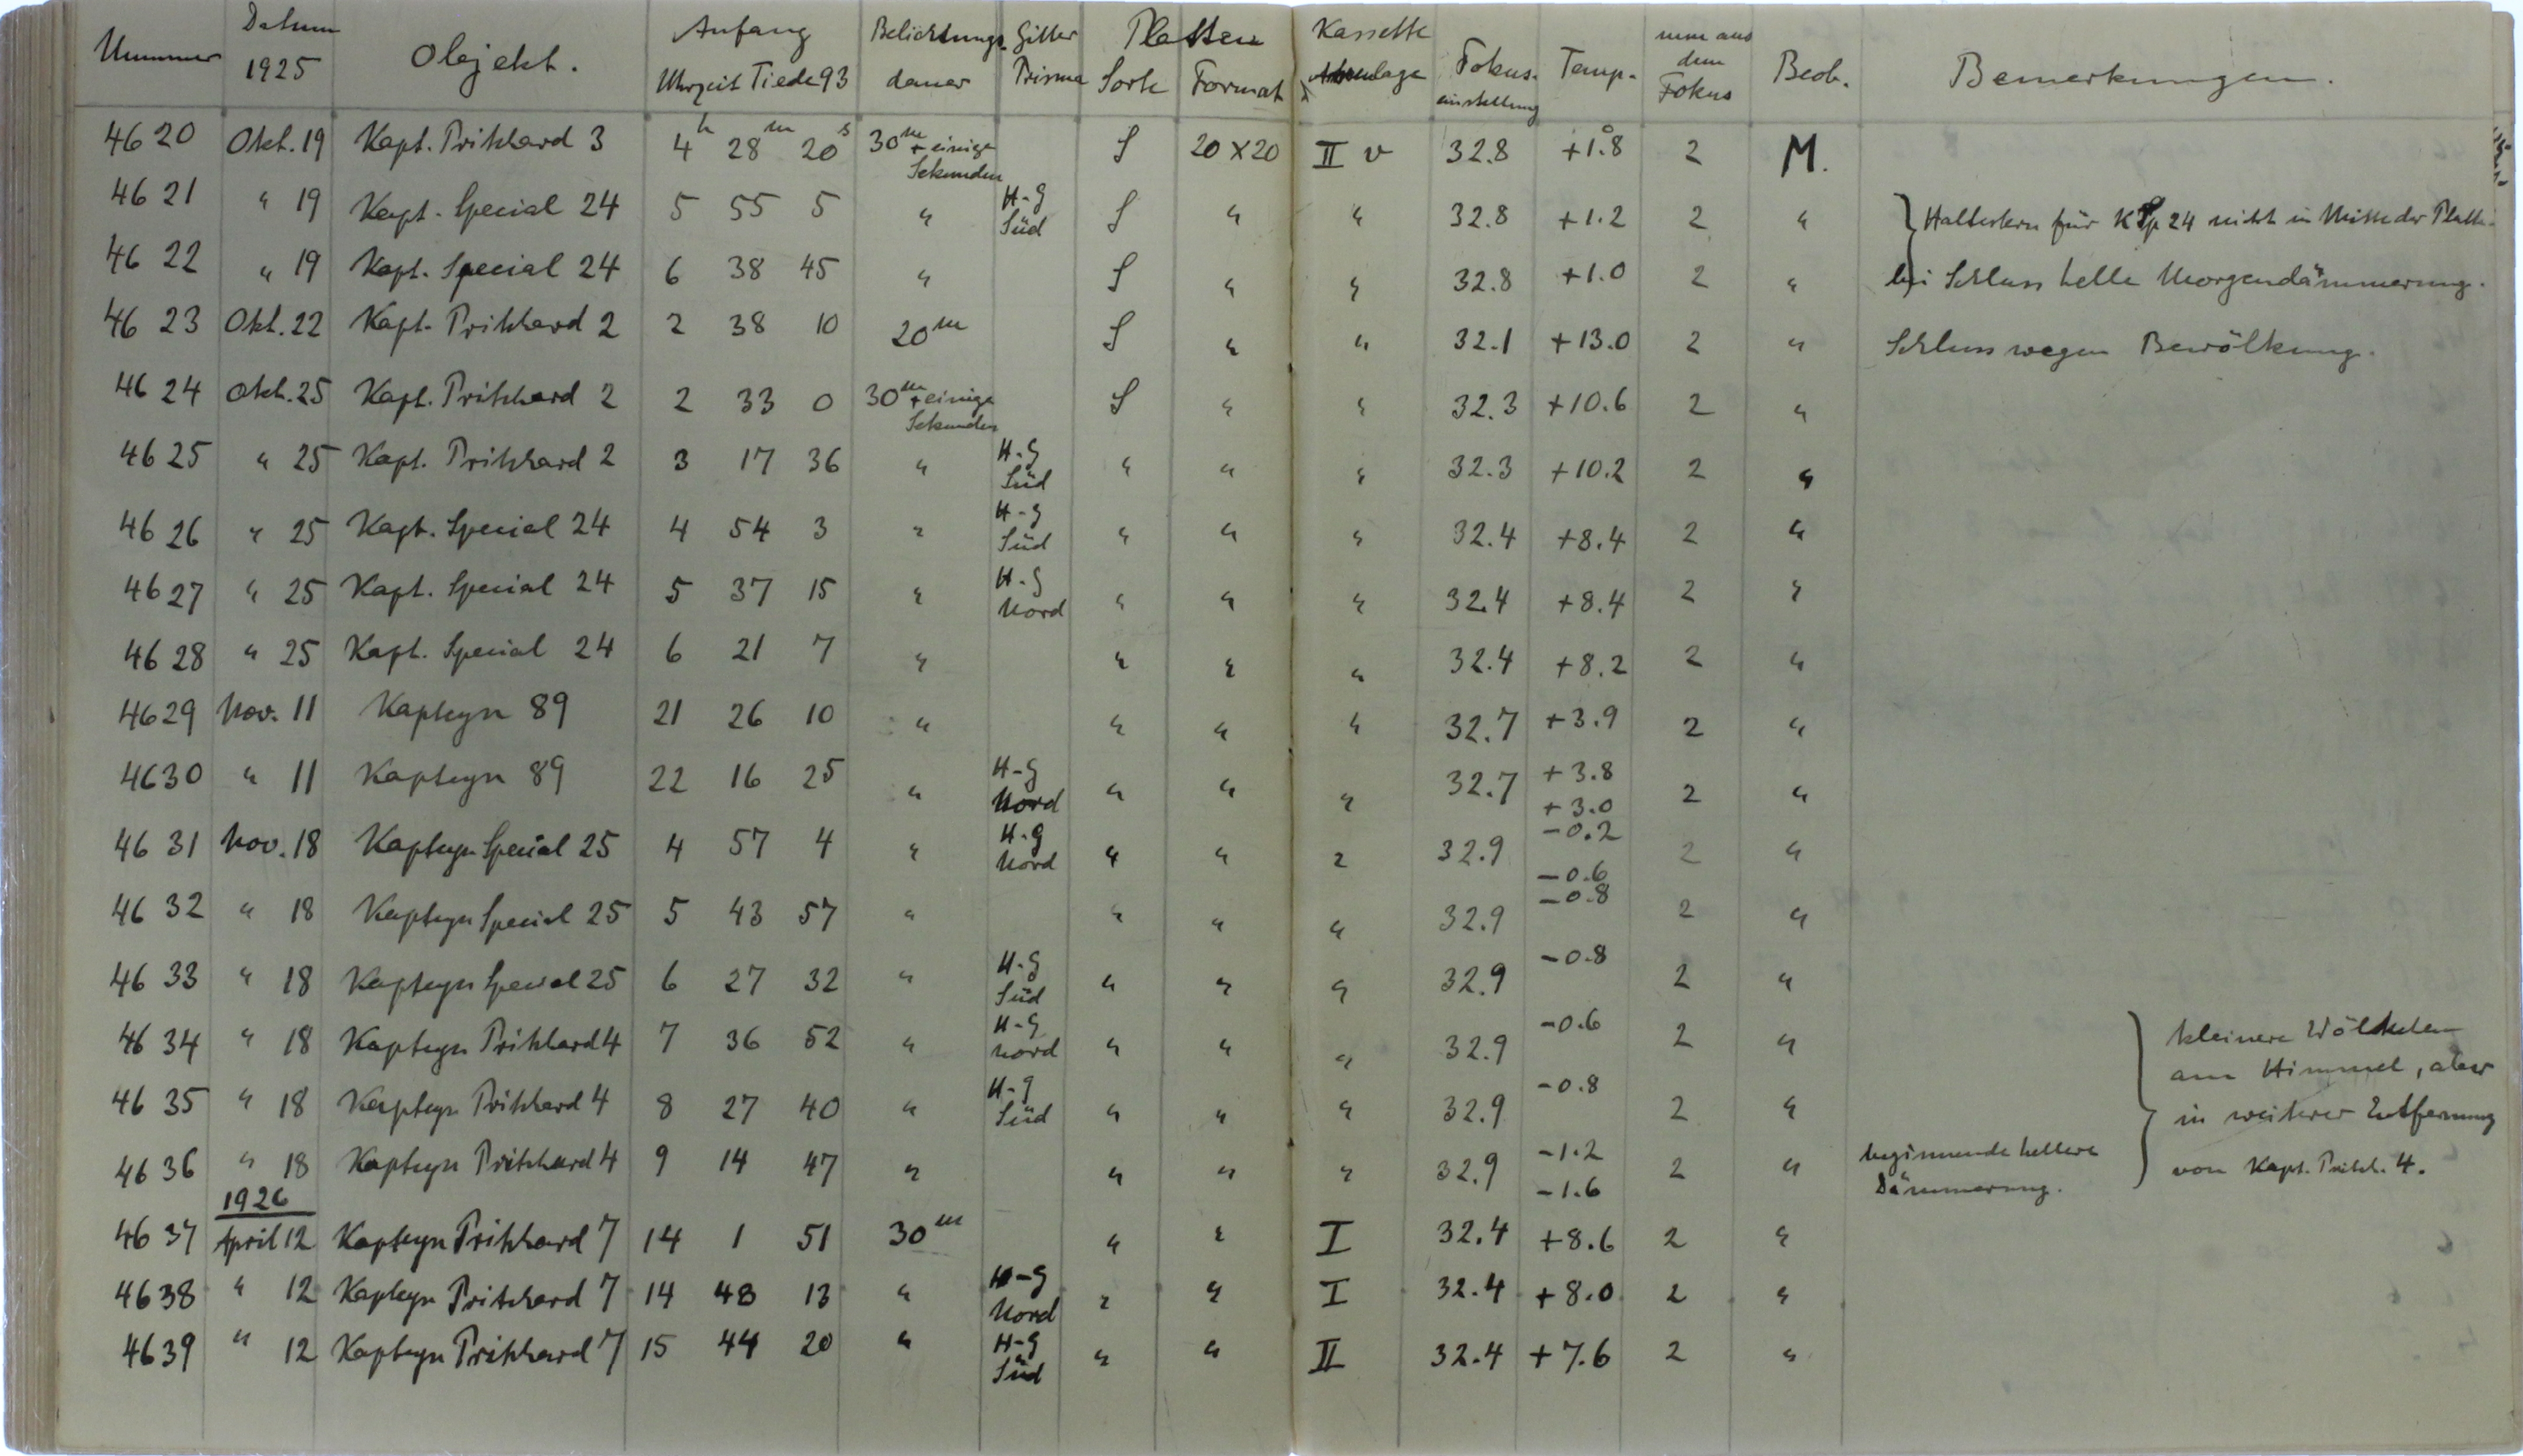 Nummer Datum 1925 Objekt. Anfang Uhrzeit Tiede 93 Belichtungs dauer Gitter Prisma Platten Sorte Format Kassette lage Fokus- einstellung Temp. mm aus dem Fokus Beob. Bemerkungen.
4620 Okt. 19 Kapt. Pritchard 3 4h 28m 20s 30m + einige Sekunden S 20 X 20 II v 32.8 +1.8° 2 M.
4621 " 19 Kapt. Special 24 5 55 5 " H-G Süd S " " 32.8 +1.2 2 " Haltestern für K Sp 24 nicht in Mitte der Platte.
4622 " 19 Kapt. Special 24 6 38 45 " S " " 32.8 +1.0 2 " bei Schluss helle Morgendämmerung.
4623 Okt. 22 Kapt. Pritchard 2 2 38 10 20m S " " 32.1 +13.0 2 " Schluss wegen Bewölkung.
4624 Okt. 25 Kapt. Pritchard 2 2 33 0 30m + einige Sekunden S " " 32.3 +10.6 2 "
4625 " 25 Kapt. Pritchard 2 3 17 36 " H-G Süd " " " 32.3 +10.2 2 "
4626 " 25 Kapt. Special 24 4 54 3 " H-G Süd " " " 32.4 +8.4 2 "
4627 " 25 Kapt. Special 24 5 37 15 " H-G Nord " " " 32.4 +8.4 2 "
4628 " 25 Kapt. Special 24 6 21 7 " " " " 32.4 +8.2 2 "
4629 Nov. 11 Kapteyn 89 21 26 10 " " " " 32.7 +3.9 2 "
4630 " 11 Kapteyn 89 22 16 25 " H-G Nord " " " 32.7 +3.8 +3.0 2 "
4631 Nov. 18 Kapteyn Special 25 4 57 4 " H-G Nord " " " 32.9 -0.2 -0.6 2 "
4632 " 18 Kapteyn Special 25 5 43 57 " " " " 32.9 -0.8 2 "
4633 " 18 Kapteyn Special 25 6 27 32 " H-G Süd " " " 32.9 -0.8 2 "
4634 " 18 Kapteyn Pritchard 4 7 36 52 " H-G Nord " " " 32.9 -0.6 2 " kleinere Wölkchen
am Himmel, aber
4635 " 18 Kapteyn Pritchard 4 8 27 40 " H-G Süd " " " 32.9 -0.8 2 " in weiterer Entfernung
4636 " 18 Kapteyn Pritchard 4 9 14 47 " " " " 32.9 -1.2 -1.6 2 " beginnende hellere Dämmerung. von Kapt. Pritch. 4.
1926
4637 April 12 Kapteyn Pritchard 7 14 1 51 30m " " I 32.4 +8.6 2 "
4638 " 12 Kapteyn Pritchard 7 14 48 13 " H-G Nord " " I 32.4 +8.0 2 "
4639 " 12 Kapteyn Pritchard 7 15 44 20 " H-G Süd " " II 32.4 +7.6 2 "